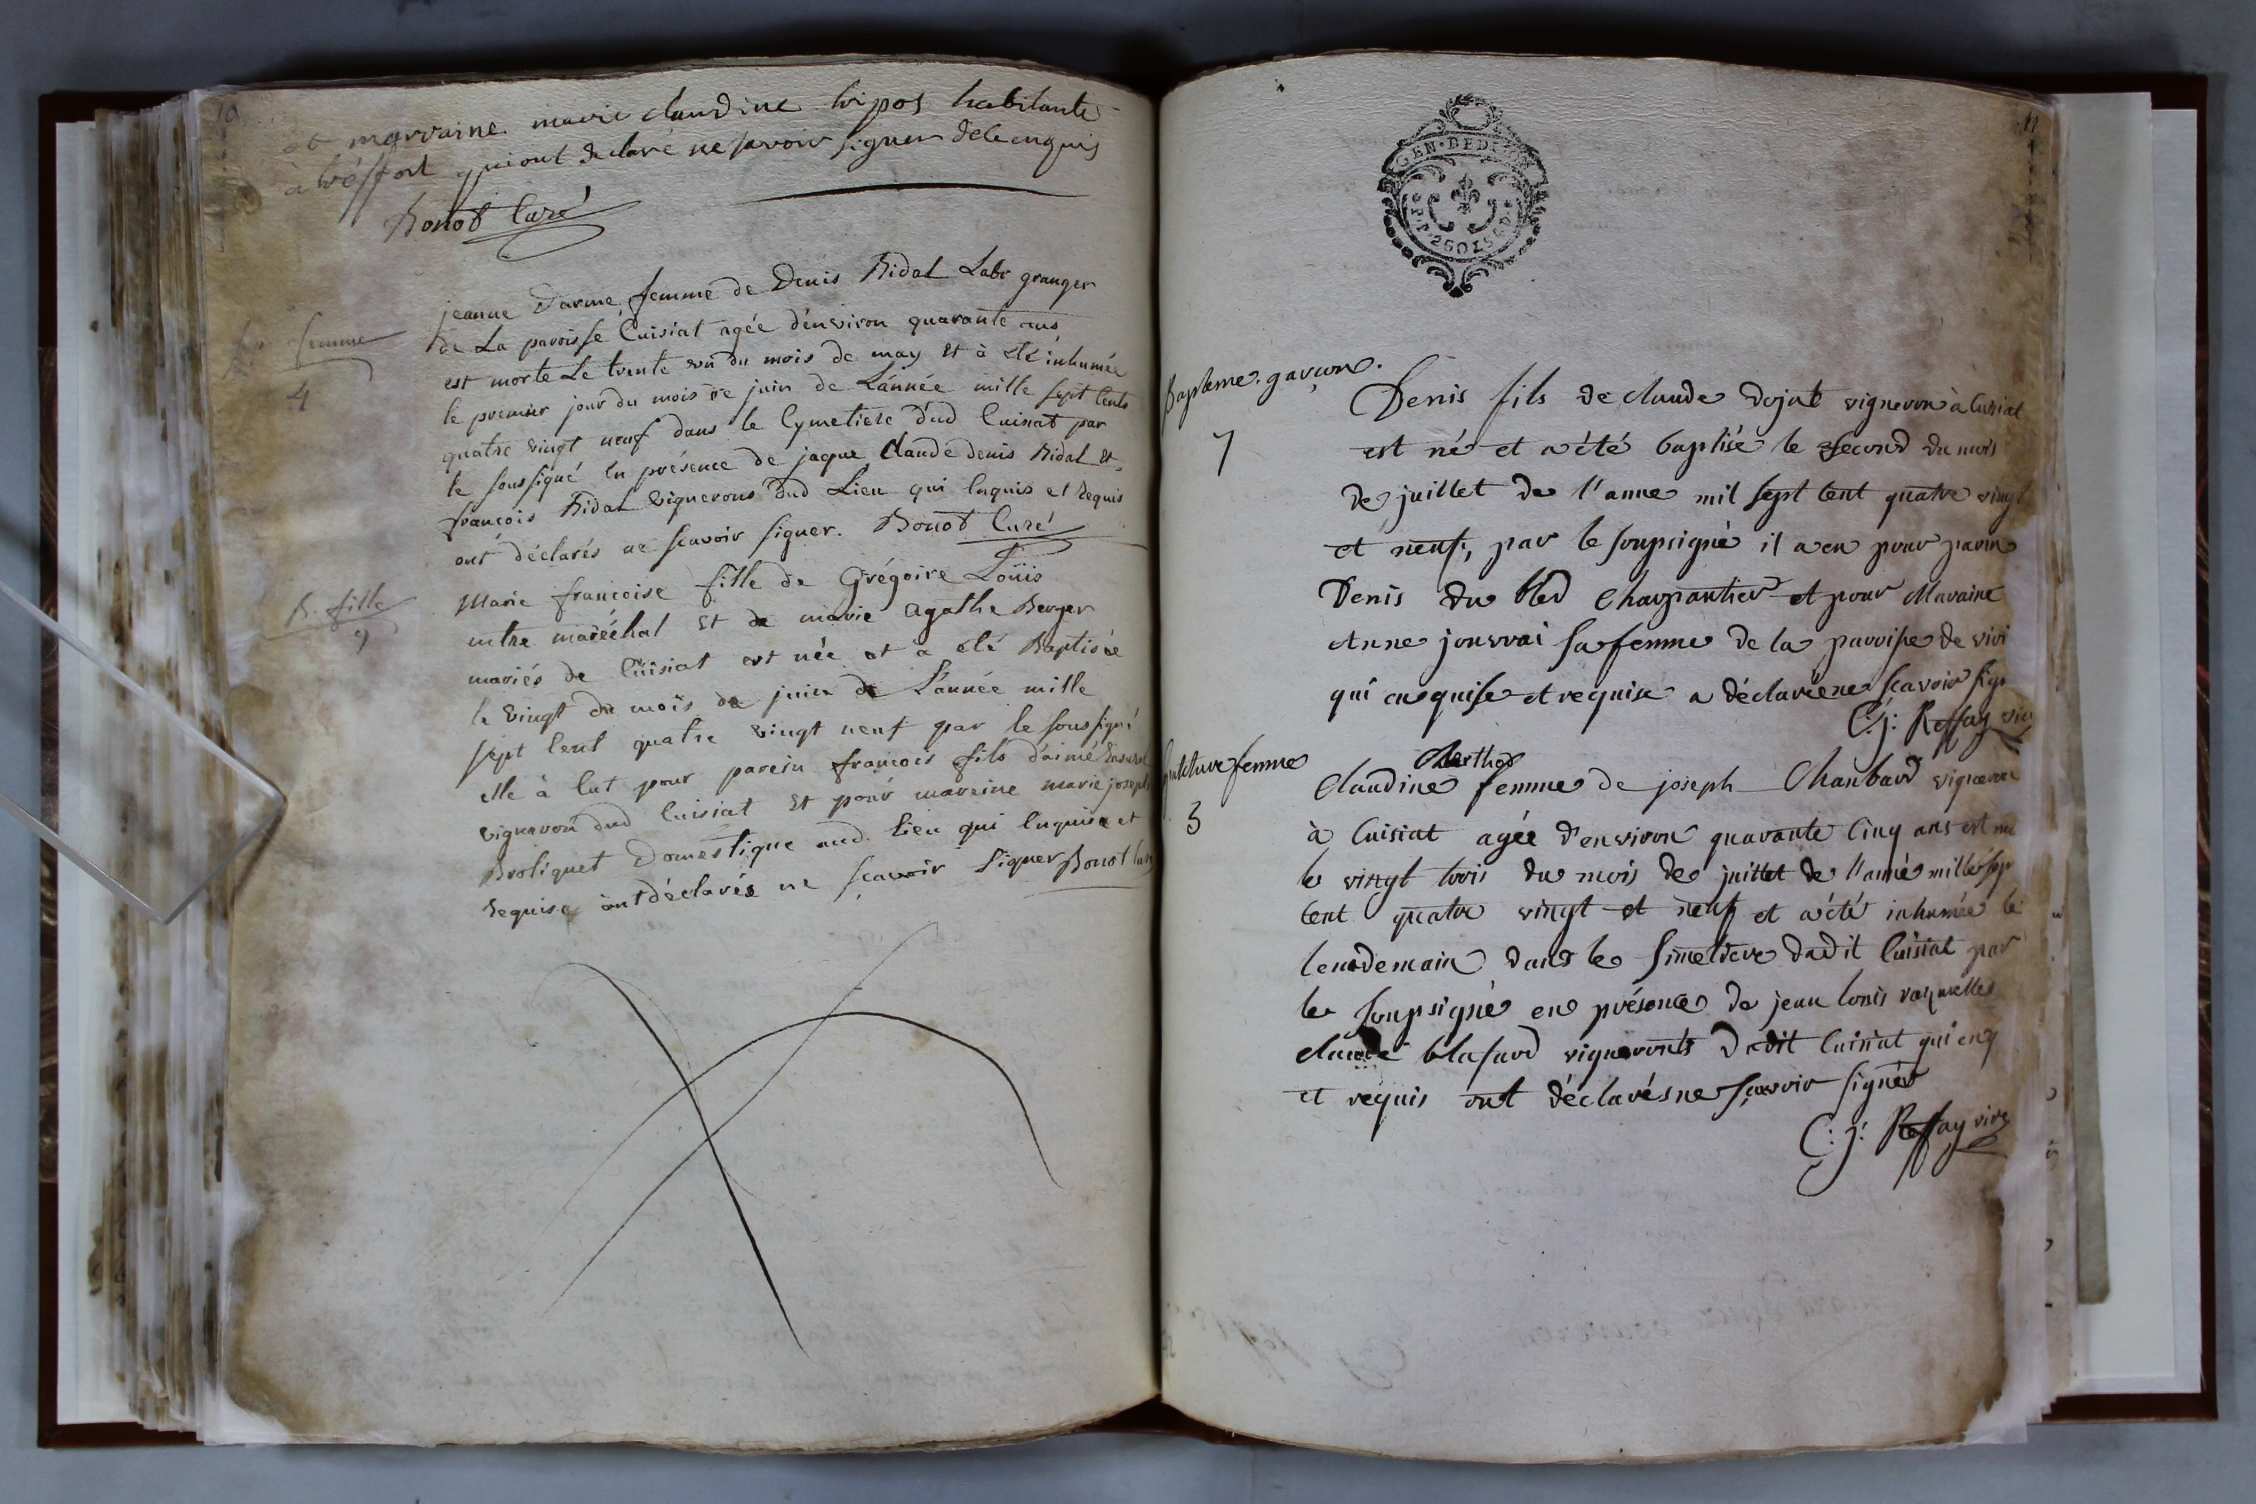 10
et marraine marie claudine tripos habitante
à tréffort qui ont déclaré ne savoir signer de ce enquis
Bonod Curé
S. femme
4
jeanne Darme femme de Denis Bidal Labr granger
de La paroisse Cuisiat agée d'environ quarante ans
est morte Le trente un du mois de may Et à été inhumée
le premier jour du mois de juin de L'année mille sept Cents
quatre vingt neuf dans le Cymetiere dud Cuisiat par
le soussigné En présence de jaque Claude denis Bidal Et
françois Bidal vignerons dud Lieu qui Enquis et Requis
ont déclarés ne scavoir signer. Bonod Curé
B. fille
9
Marie francoise fille de Grégoire Loüis
mtre maréchal Et de marie agathe Berger
mariés de Cüisiat est née et a été Baptisée
le vingt du mois de juin de L'année mille
sept Cent quatre vingt neuf par le soussigné
elle à Eut pour parein francois fils d'aimé
vigneron dud Cuisiat Et pour mareine marie joseph
Broliquet Domestique aud. Lieu qui Enquise et
Requise ont déclarés ne scavoir Signer Bonod Curé
11
GEN · DE DIJON
Baptême garçon.
7
Denis fils de claude dojat vigneron à Cuisiat
est né et a été baptisé le second du mois
de juillet de l'anne mil sept Cent quatre vingt
et neuf, par le soupsigné il a eu pour parin
Denis du bled Charpantier et pour Maraine
Anne jouvrai sa femme de la parroisse de
qui enquise et requise a déclaré ne scavoir sign
C: j: Reffay vic
sepulture femme
5
Berthod
Claudine femme de joseph Chanbard vigneron
à Cuisiat agée d'environ quarante Cinq ans est mo
le vingt trois du mois de juillet de l'anné mille sep
Cent quatre vingt et neuf et a été inhumée le
lendemain dans le Simetiere dudit Cuisiat par
le soupsigné en présence de jean louis
claude blasard vignerons dudit Cuisiat qui enq
et requis ont déclarés ne scavoir signer
C: j: Reffay vic